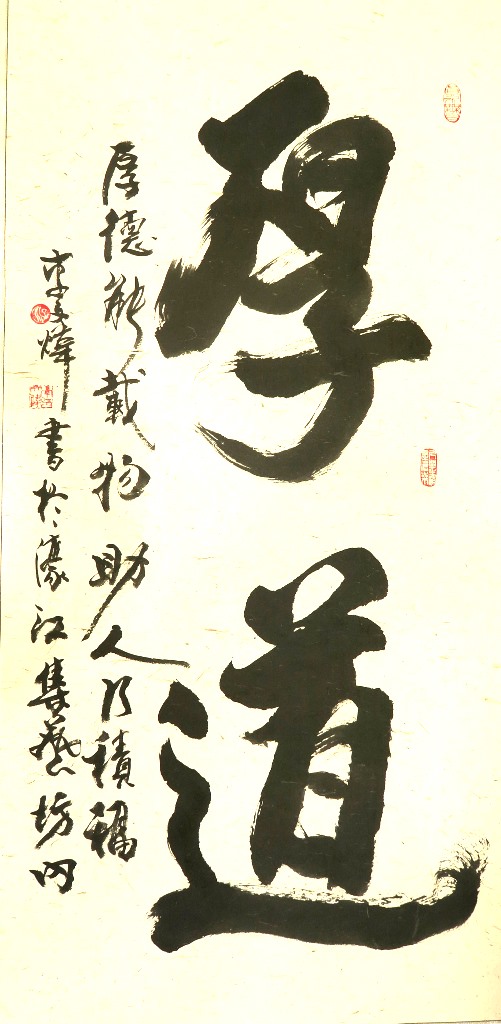 厚道
厚德能载物助人乃積福
李文煒書於濠江集藝坊内